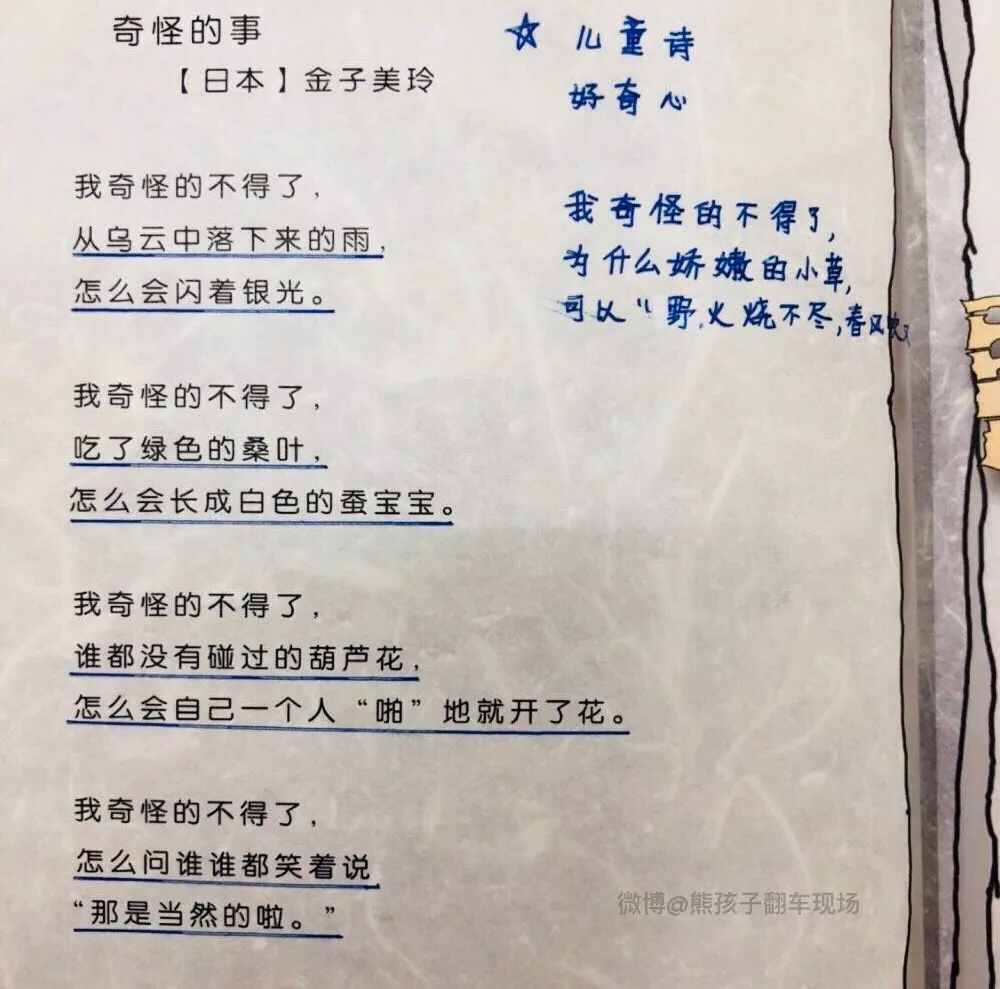 奇怪的事
【日本】金子美玲
我奇怪的不得了，
从乌云中落下来的雨，
怎么会闪着银光。
我奇怪的不得了，
吃了绿色的桑叶，
怎么会长成白色的蚕宝宝。
我奇怪的不得了，
谁都没有碰过的葫芦花，
怎么会自己一个人“啪”地就开了花。
我奇怪的不得了，
怎么问谁谁都笑着说
“那是当然的啦。”
☆ 儿童诗
好奇心
我奇怪的不得了，
为什么娇嫩的小草，
可以“野火烧不尽，春风吹又
微博@熊孩子翻车现场